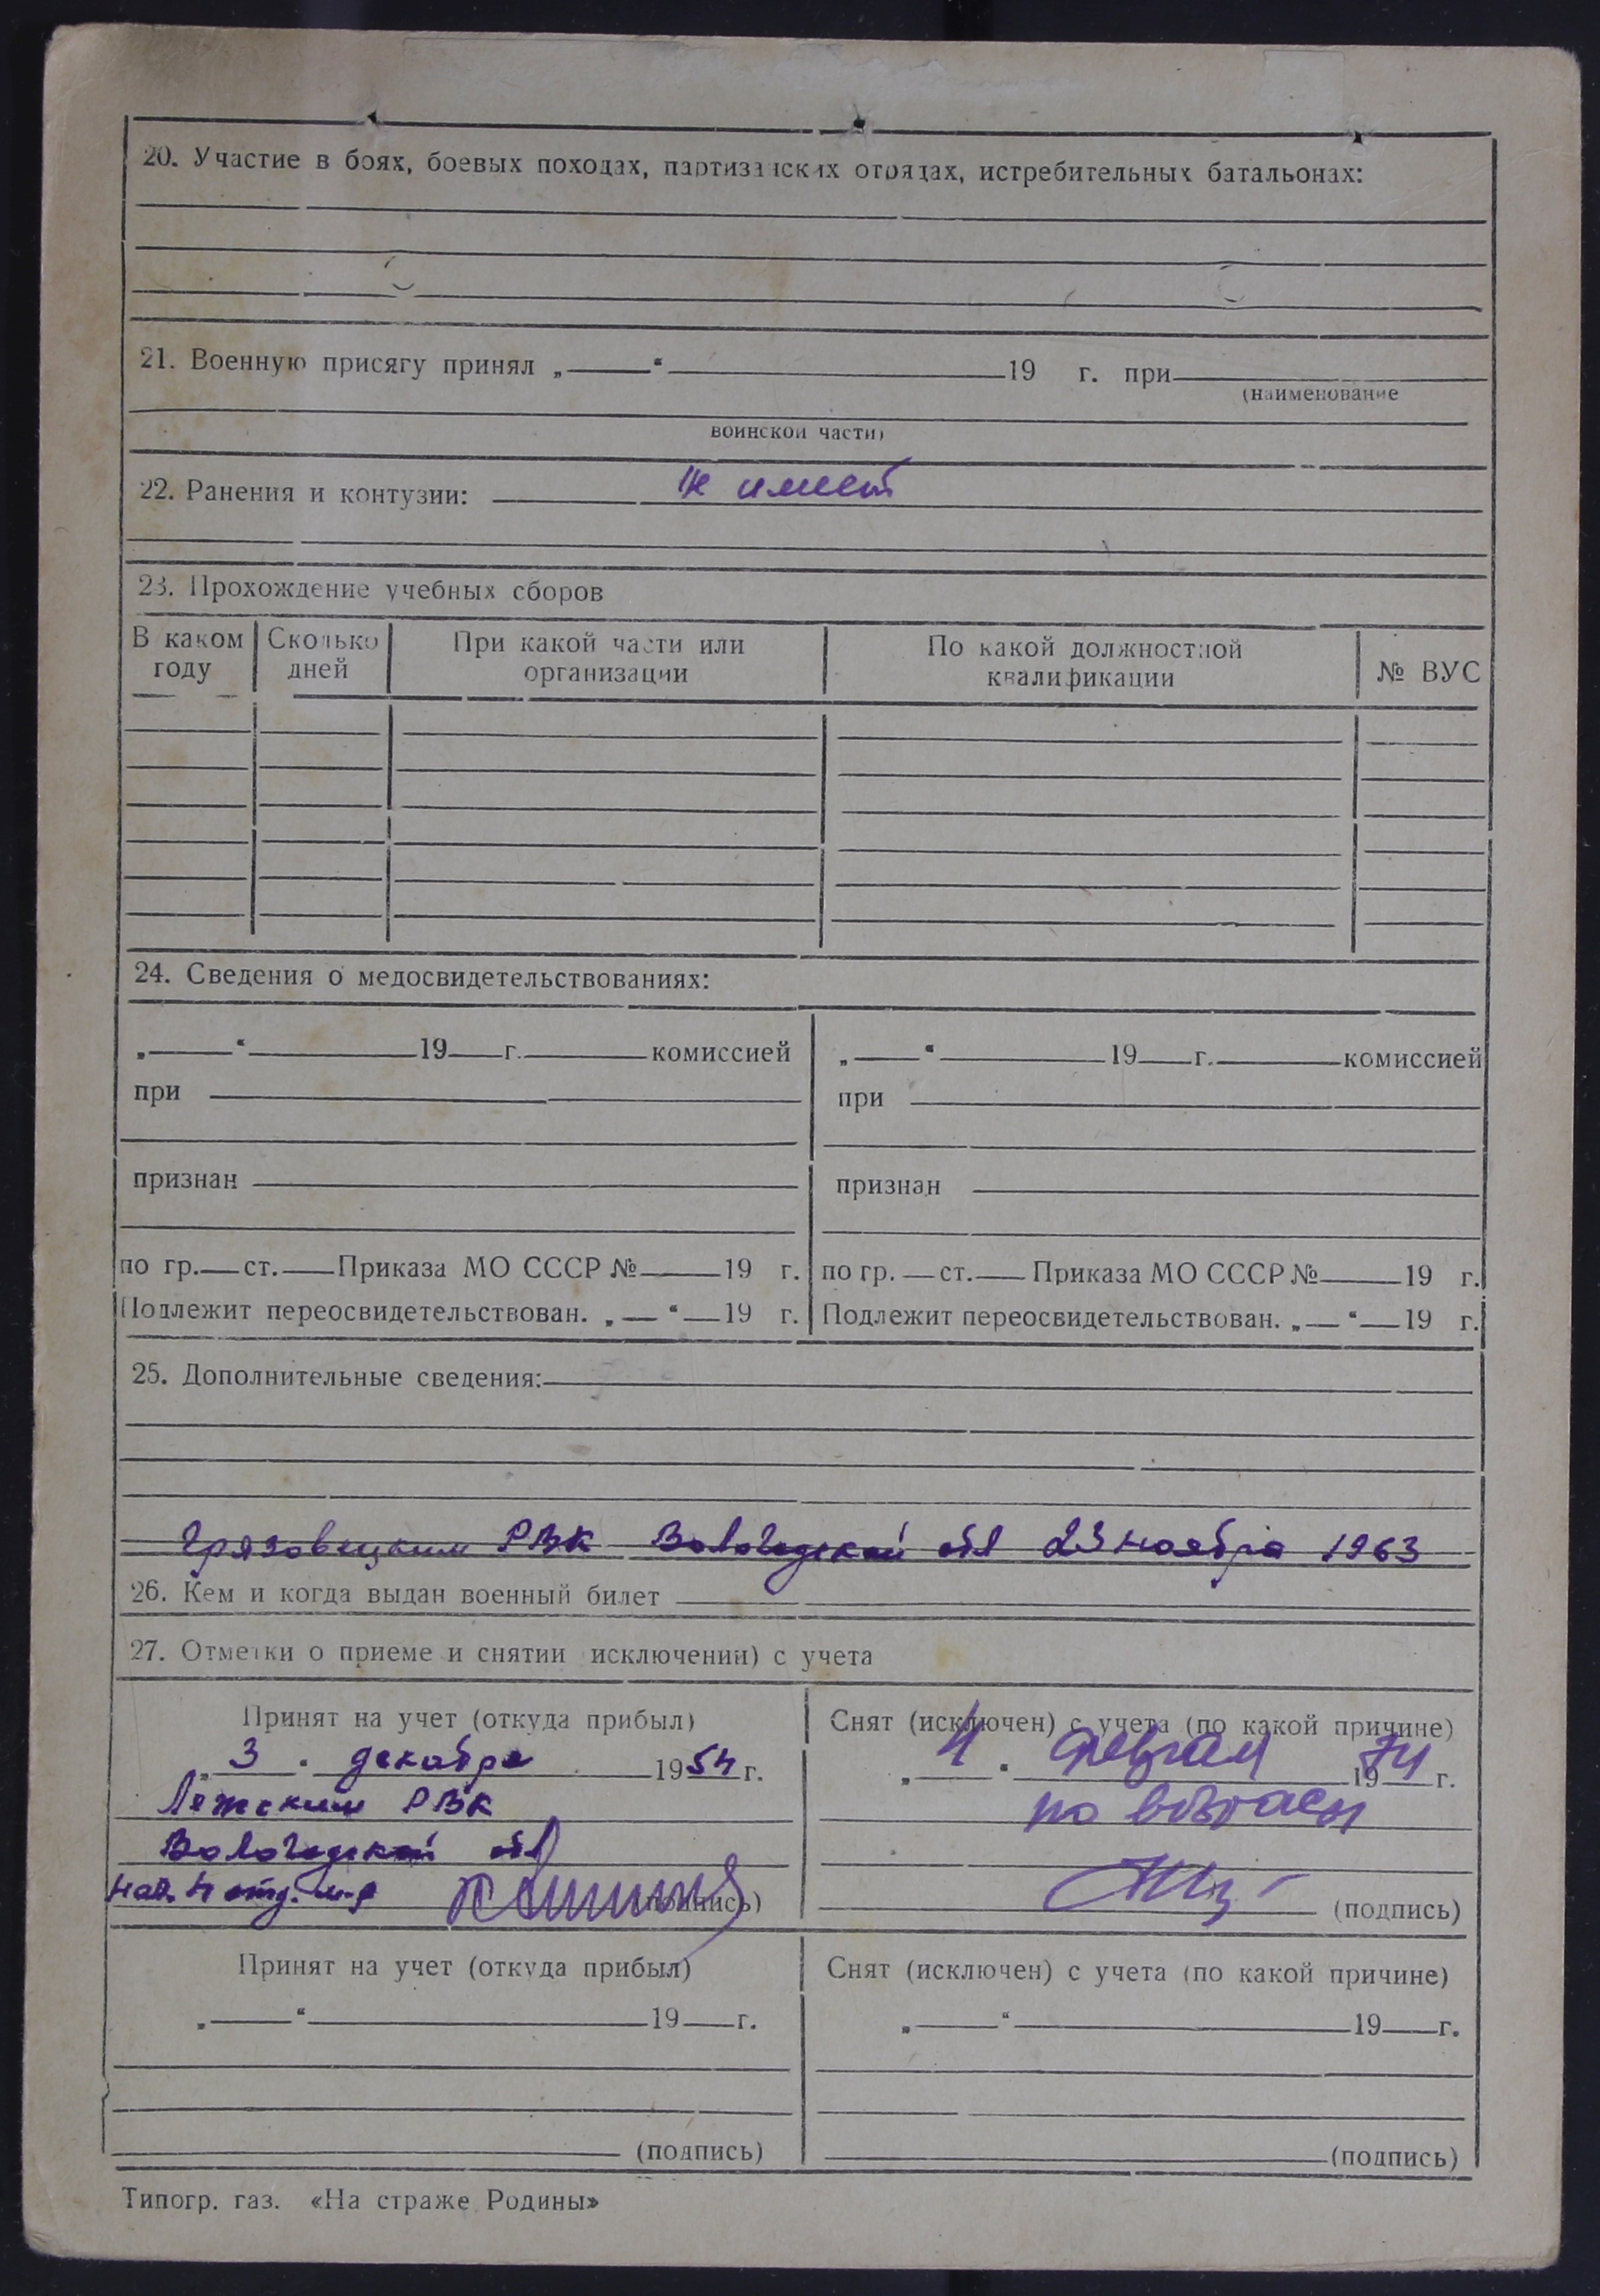 20. Участие в боях, боевых походах, партизанских отрядах, истребительных батальонах:
21. Военную присягу принял „ “ 19 г. при
(наименование
воинской части)
22. Ранения и контузии: не имеет
23. Прохождение учебных сборов
В каком году Сколько дней При какой части или организации По какой должностной квалификации № ВУС
24. Сведения о медосвидетельствованиях:
„ “ 19 г. комиссией „ “ 19 г. комиссией
при при
признан признан
по гр. ст. Приказа МО СССР № 19 г. по гр. ст. Приказа МО СССР № 19 г.
Подлежит переосвидетельствован. „ “ 19 г. Подлежит переосвидетельствован. „ “ 19 г.
25. Дополнительные сведения:
Грязовецким РВК Вологодской обл 23 ноября 1963
26. Кем и когда выдан военный билет
27. Отметки о приеме и снятии исключении) с учета
Принят на учет (откуда прибыл)
„ 3 “ декабря 1954 г.
Лежским РВК
Вологодской обл
Нач. 4 отд. (подпись)
Снят (исключен) с учета (по какой причине)
„ 4 “ февраля 1974 г.
по возрасту
(подпись)
Принят на учет (откуда прибыл) Снят (исключен) с учета (по какой причине)
„ “ 19 г. „ “ 19 г.
(подпись) (подпись)
Типогр. газ. «На страже Родины»